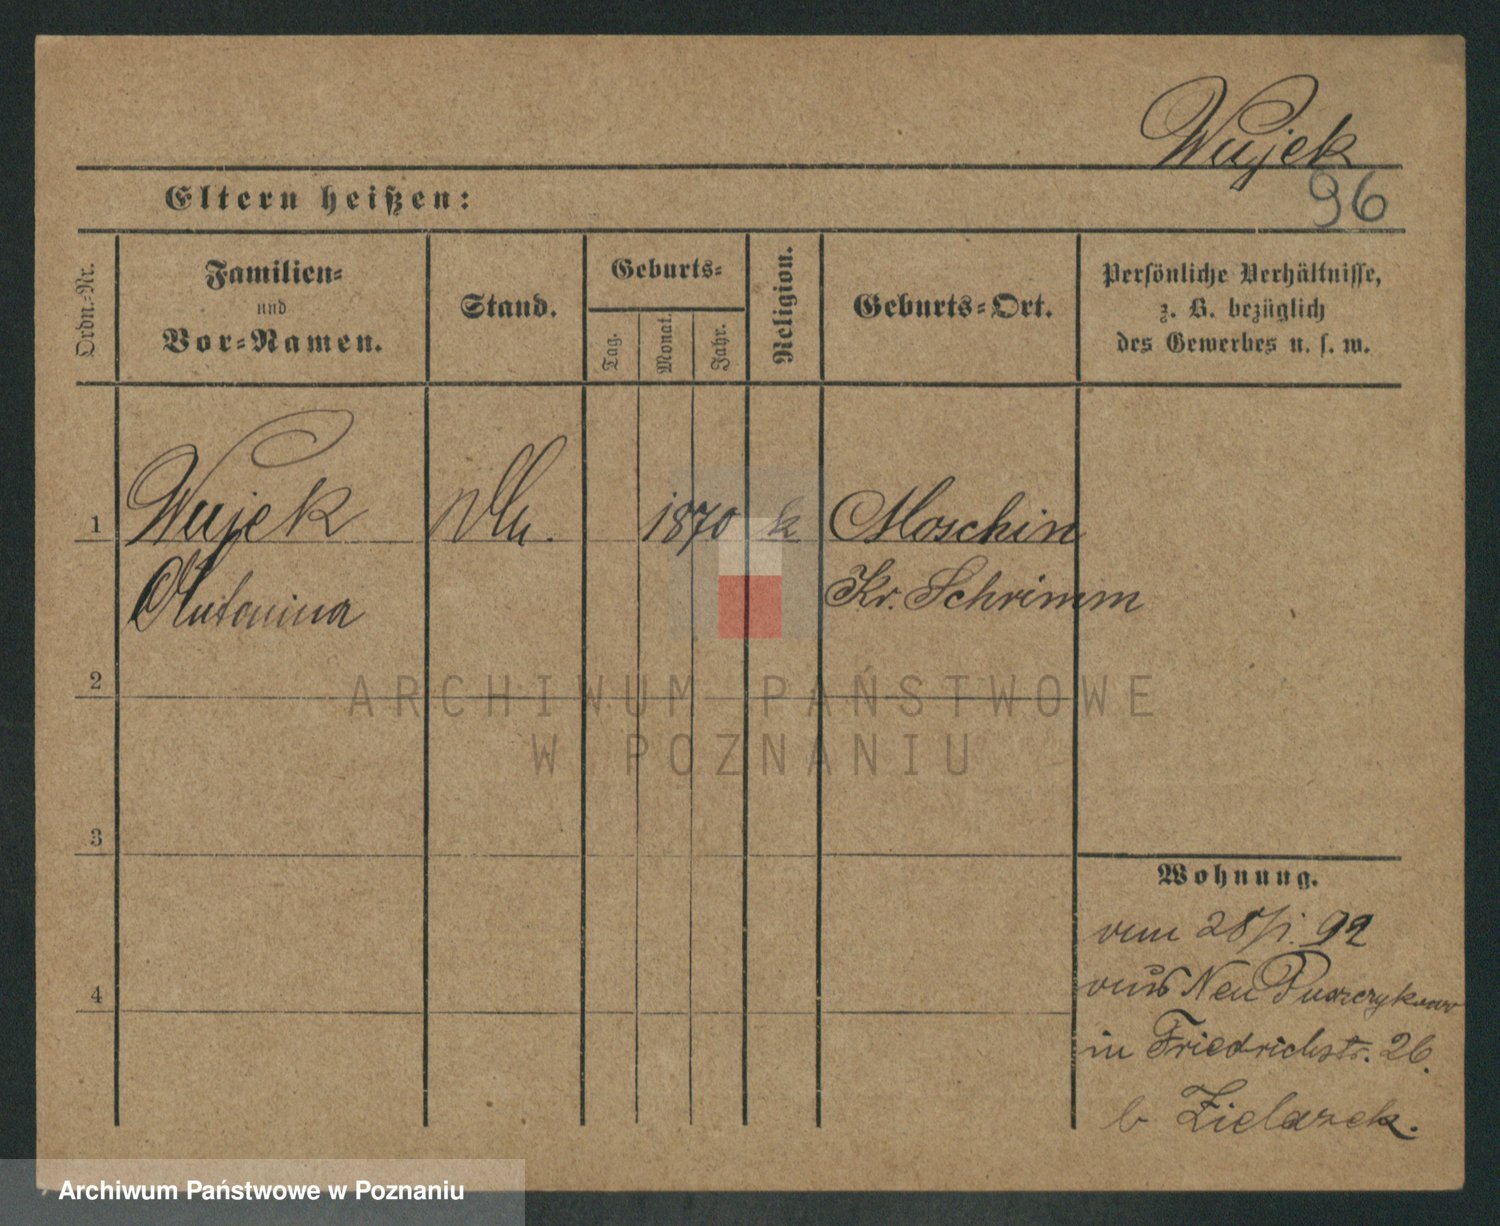 Wujek
96
Eltern heißen:
Ordn.-Nr.
Familien-
und
Vor-Namen.
Stand.
Geburts-
Tag.
Monat.
Jahr.
Religion.
Geburts-Ort.
Persönliche Verhältnisse,
z. B. bezüglich
des Gewerbes u. s. w.
1
Wujek
Antonina
1870
k
Moschin
Kr. Schrimm
2
ARCHIWUM PAŃSTWOWE
W POZNANIU
3
4
Wohnung.
vom 28/1. 92
aus Neu
in Friedrichstr. 26.
b Zielazek.
Archiwum Państwowe w Poznaniu